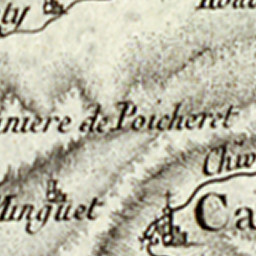 ty
niere de Poicheret
Minguet
Ca